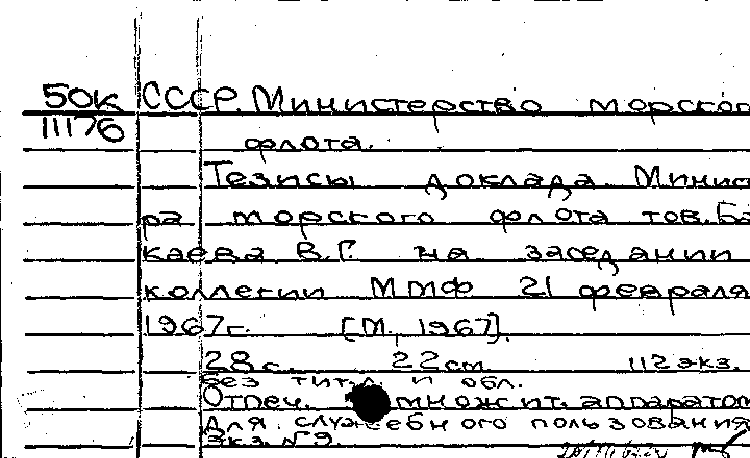 50к СССР. Министерство морског
11176 флота.
Тезисы доклада Минис
ра морского флота тов. Ба
каева В.Г. на заседании
коллегии ММФ 21 февраля
1967г. [М., 1967].
28с. 22см. 112 экз.
Без тит.л. и обл.
Отпеч. множит. аппаратом
Для служебного пользования
Экз. №9.